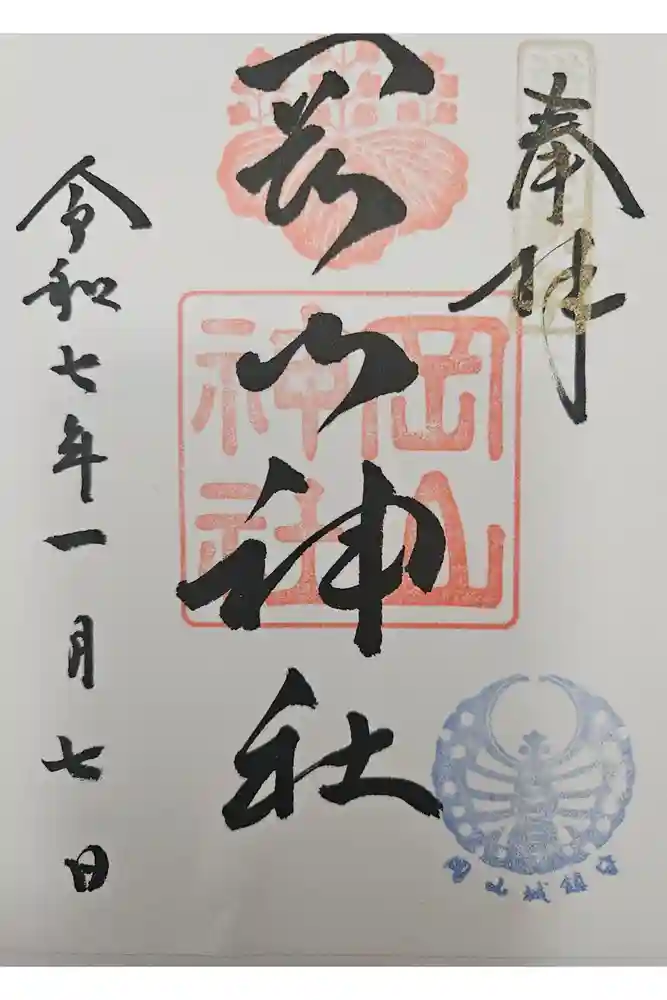 奉拝
岡山神社
岡山
神社
令和七年一月七日
岡山城鎮守